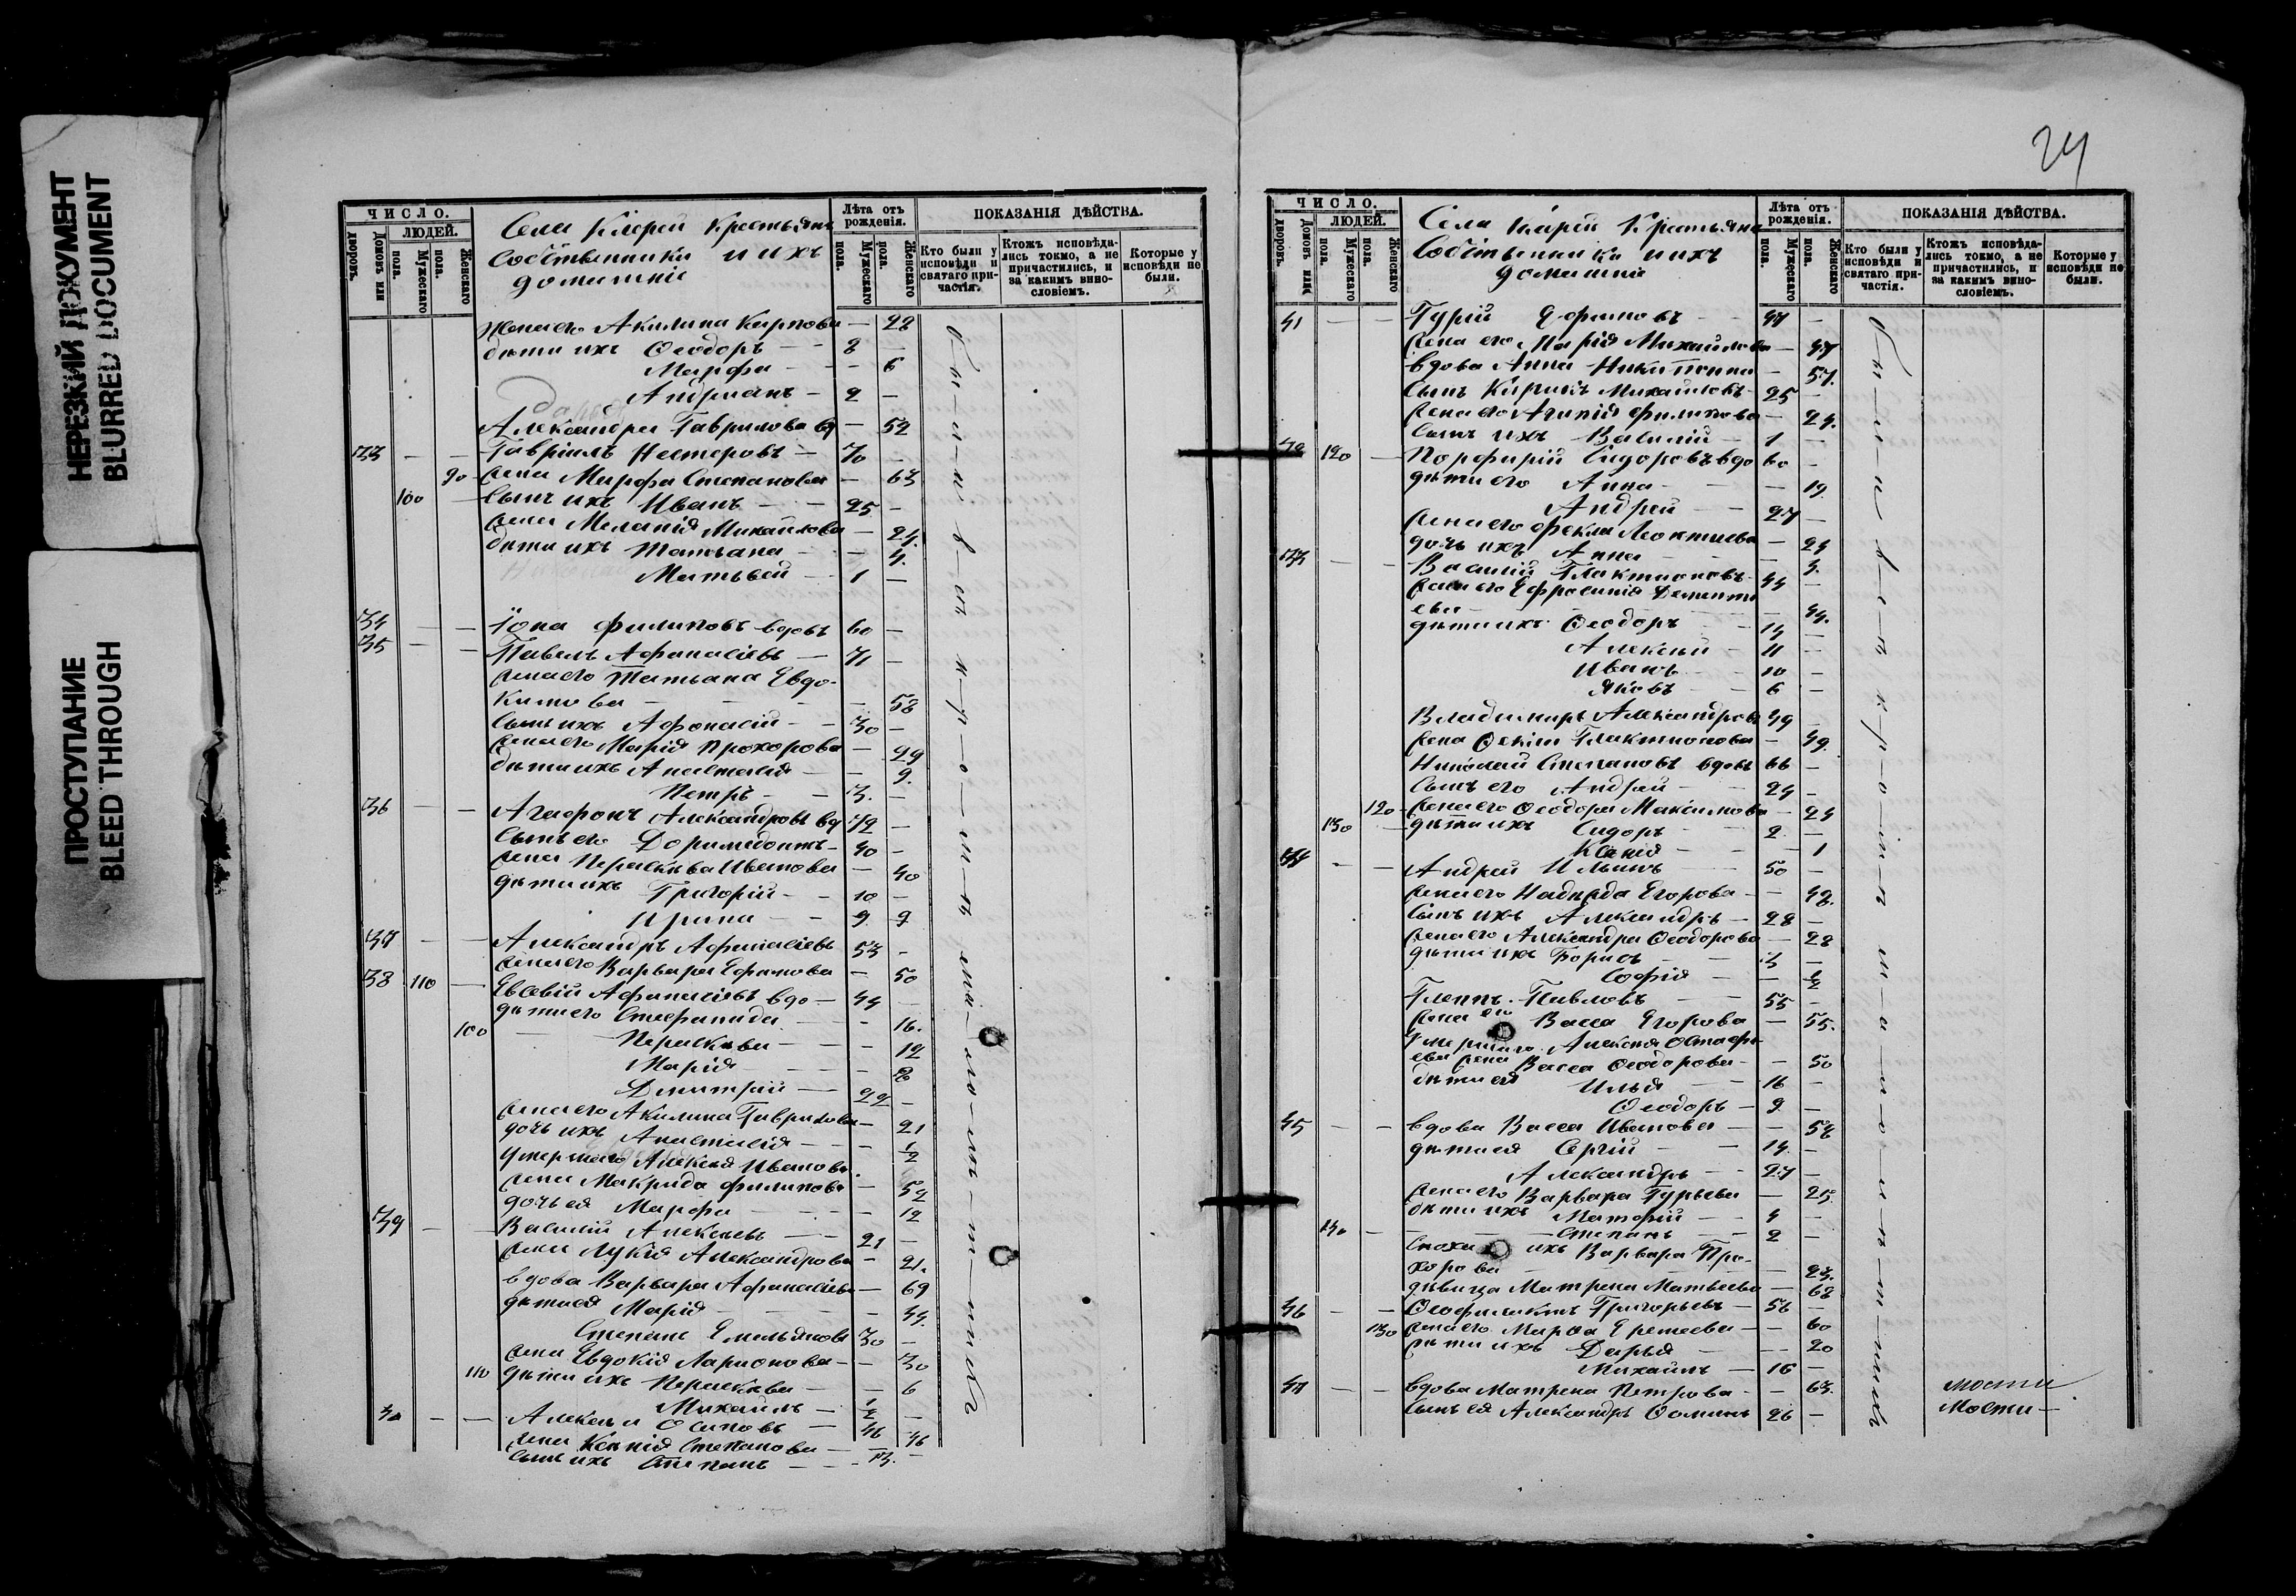 НЕРЕЗКИЙ ДОКУМЕНТ
BLURRED DOCUMENT
ПРОСТУПАНИЕ
BLEED THROUGH
24
ЧИСЛО.
ЛЮДЕЙ.
Домовъ или дворовъ.
Мужескаго пола.
Женскаго пола.
Села Крестьяне
Собственники и ихъ
домашніе
Лѣта отъ рожденія.
Мужескаго пола.
Женскаго пола.
ПОКАЗАНІЯ ДѢЙСТВА.
Кто были у исповѣди и святаго причастія.
Ктожъ исповѣдались токмо, а не причастились, и за какимъ винословіемъ.
Которые у исповѣди не были.
жена его Акилина Карпова — 28
дѣти ихъ Ѳеодоръ — 8 —
Марфа — — 6
Андріанъ — 2 —
Александра Гаврилова вд — 52
33 — — Гавріилъ Нестеровъ — 70 —
90 жена Марфа Степанова — 63
100 — сынъ ихъ Иванъ — 25 —
жена Меланія Михайлова — 24
дѣти ихъ Татьана — — 4.
Матвей — 1 —
34 — — Іона Филиповъ вдовъ 60 —
35 — — Павелъ Афанасіевъ — 71 —
жена его Татьана Евдо-
кимова — — 58
сынъ ихъ Афонасій — 30 —
жена его Марія Прохорова — 29
дѣти ихъ Анастасія — — 9.
Петръ — 3. —
36 — — Агафонъ Александровъ вд 72 —
сынъ его Доримедонтъ — 40 —
жена Параскѣва Иванова — 40
дѣти ихъ Григорій — 10 —
Ирина — 9 9
37 — — Александръ Афанасіевъ 53 —
жена его Варвара Ефимова — 50
38 110 — Евсевій Афанасіевъ вдо — 44 —
дѣти его Стефанида — — 16.
100 — Параскѣва — — 12
Марія — — 8
Димитрій — 22 —
жена его Акилина Гаврилова — 21
дочь ихъ Анастасія — — 1/2
Умершаго Алексѣя Иванова
жена Макрида Филипова — 52
дочь ея Марфа — — 12
39 — — Василій Алексѣевъ — 21 —
жена Лукія Александрова — 21.
вдова Варвара Афанасіева — 69
дѣти ея Марія — — 44.
Степанъ Емельяновъ 30 —
жена Евдокія Ларионова — 30
110 дѣти ихъ Параскѣва — — 6
Михаилъ — 1/2 —
40 — — Алексѣй Осиповъ — 46 —
жена Ксенія Степанова — 46
сынъ ихъ Степанъ — 13. —
ЧИСЛО.
ЛЮДЕЙ.
Домовъ или дворовъ.
Мужескаго пола.
Женскаго пола.
Села Крестьяне
Собственники и ихъ
домашніе
Лѣта отъ рожденія.
Мужескаго пола.
Женскаго пола.
ПОКАЗАНІЯ ДѢЙСТВА.
Кто были у исповѣди и святаго причастія.
Ктожъ исповѣдались токмо, а не причастились, и за какимъ винословіемъ.
Которые у исповѣди не были.
41 — — Гурій Ефимовъ — 47 —
жена его Марія Михайлова — 47
вдова Анна Никитина — 57.
сынъ Кирилъ Михайловъ — 25 —
жена его Агапія Филипова — 24.
сынъ ихъ Василій — 1 —
42 120 — Порфирій Сидоровъ вдо 60 —
дѣти его Анна — — 19
Андрей — 27 —
жена его Фекла Леонтиева — 24
дочь ихъ Анна — — 3.
43 — — Василій Глактионовъ 44 —
жена его Ефросинія Дементи
ева — — 44.
дѣти ихъ Ѳеодоръ — 14 —
Алексѣй — 11 —
Иванъ — 10 —
Яковъ — 6 —
Владимиръ Александровъ 49 —
жена Глактионова — 49.
Николай Степановъ вдовъ 66 —
сынъ его Андрей — 24 —
120 жена его Ѳеодора Максимова — 24
130 — дѣти ихъ Сидоръ — 2 —
Ксенія — — 1
44 — — Андрей Ильинъ 50 —
жена его Надежда Егорова — 48.
сынъ ихъ Александръ — 28 —
жена его Александра Ѳеодорова — 28
дѣти ихъ Борисъ — 3 —
Софія — — 1/2
Павловъ — 55 —
жена его Васса Егорова — 55.
Умершаго Алексѣя Остафи
ева жена Васса Ѳеодорова — 50
дѣти ея Илья — 16 —
Ѳеодоръ — 9 —
45 — — вдова Васса Иванова — 58
дѣти ея Сергій — 14. —
Александръ — 27 —
жена его Варвара Гурьева — 25.
дѣти ихъ — 4 —
140 — Степанъ — 2 —
сноха ихъ Варвара Про-
хорова — — 23.
дѣвица Матрена Матвеева — 68
46 — — Ѳеофилактъ Григорьевъ — 56 —
130 жена его Марѳа Еремеева — 60
дѣти ихъ Дарья — — 20
Михаилъ — 16 —
47 — — вдова Матрена Петрова — 63.
сынъ ея Александръ Ѳоминъ 26 —